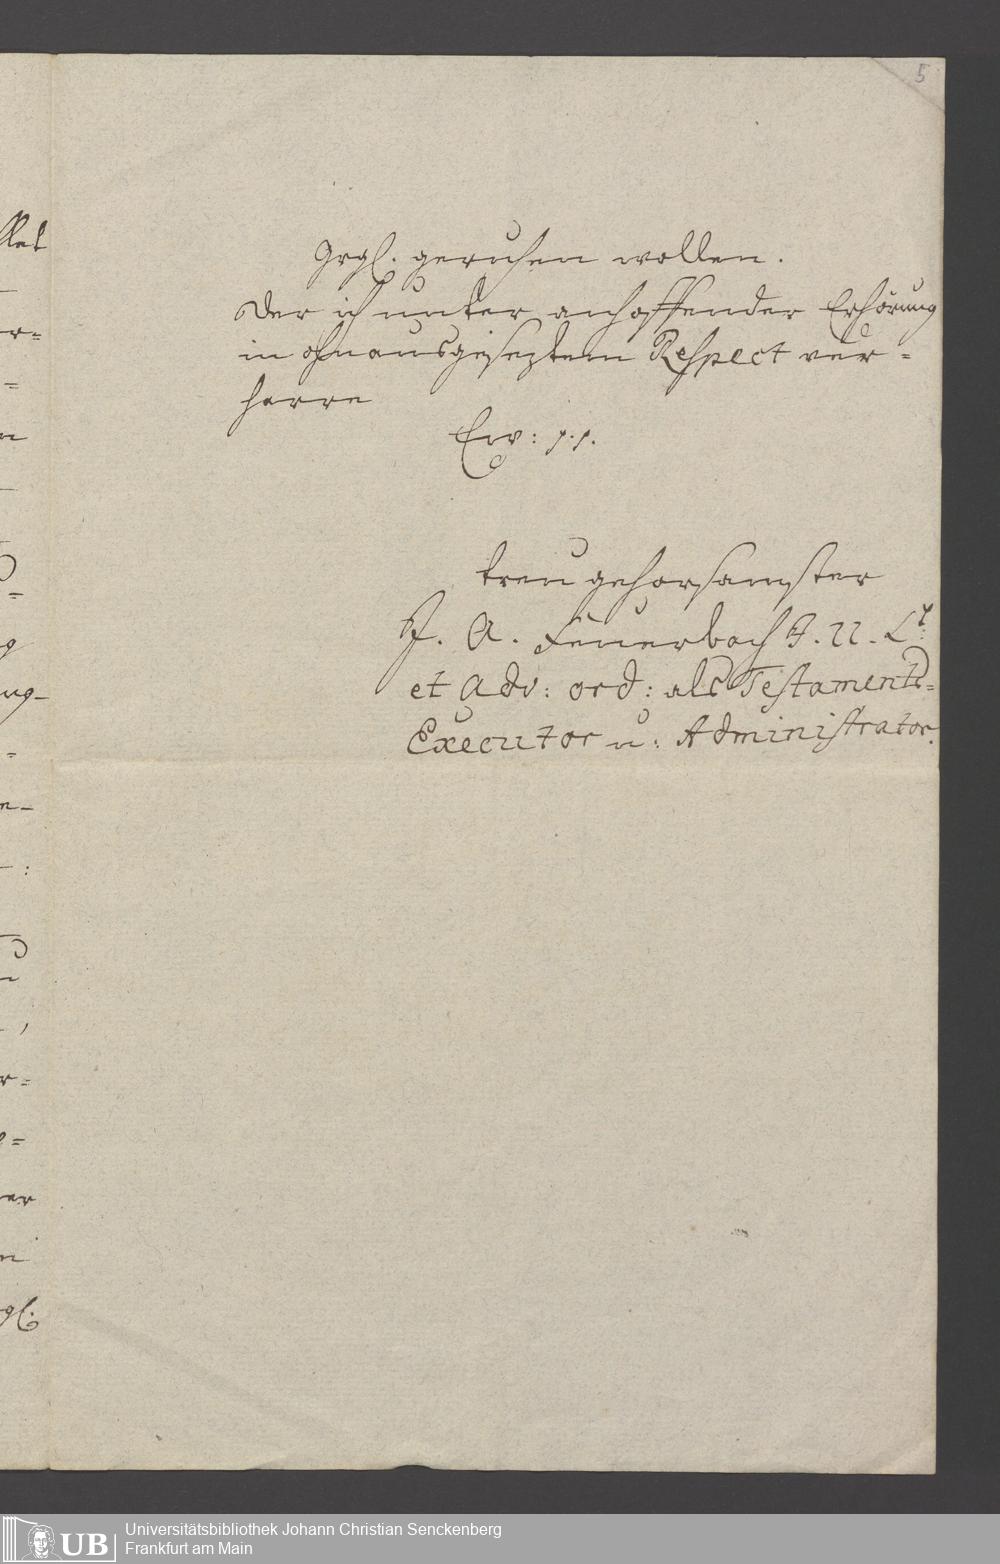 5
grgl. geruhen wollen.
Der ich unter anhoffender Erhörung
in ohnausgeseztem Respect ver-
harre
Ew: p.p.
treu gehorsamster
J. A. Feuerbach J. U. Lt:
et Adv: ord: als Testaments-
Executor u: Administrator.
UB
Universitätsbibliothek Johann Christian Senckenberg
Frankfurt am Main